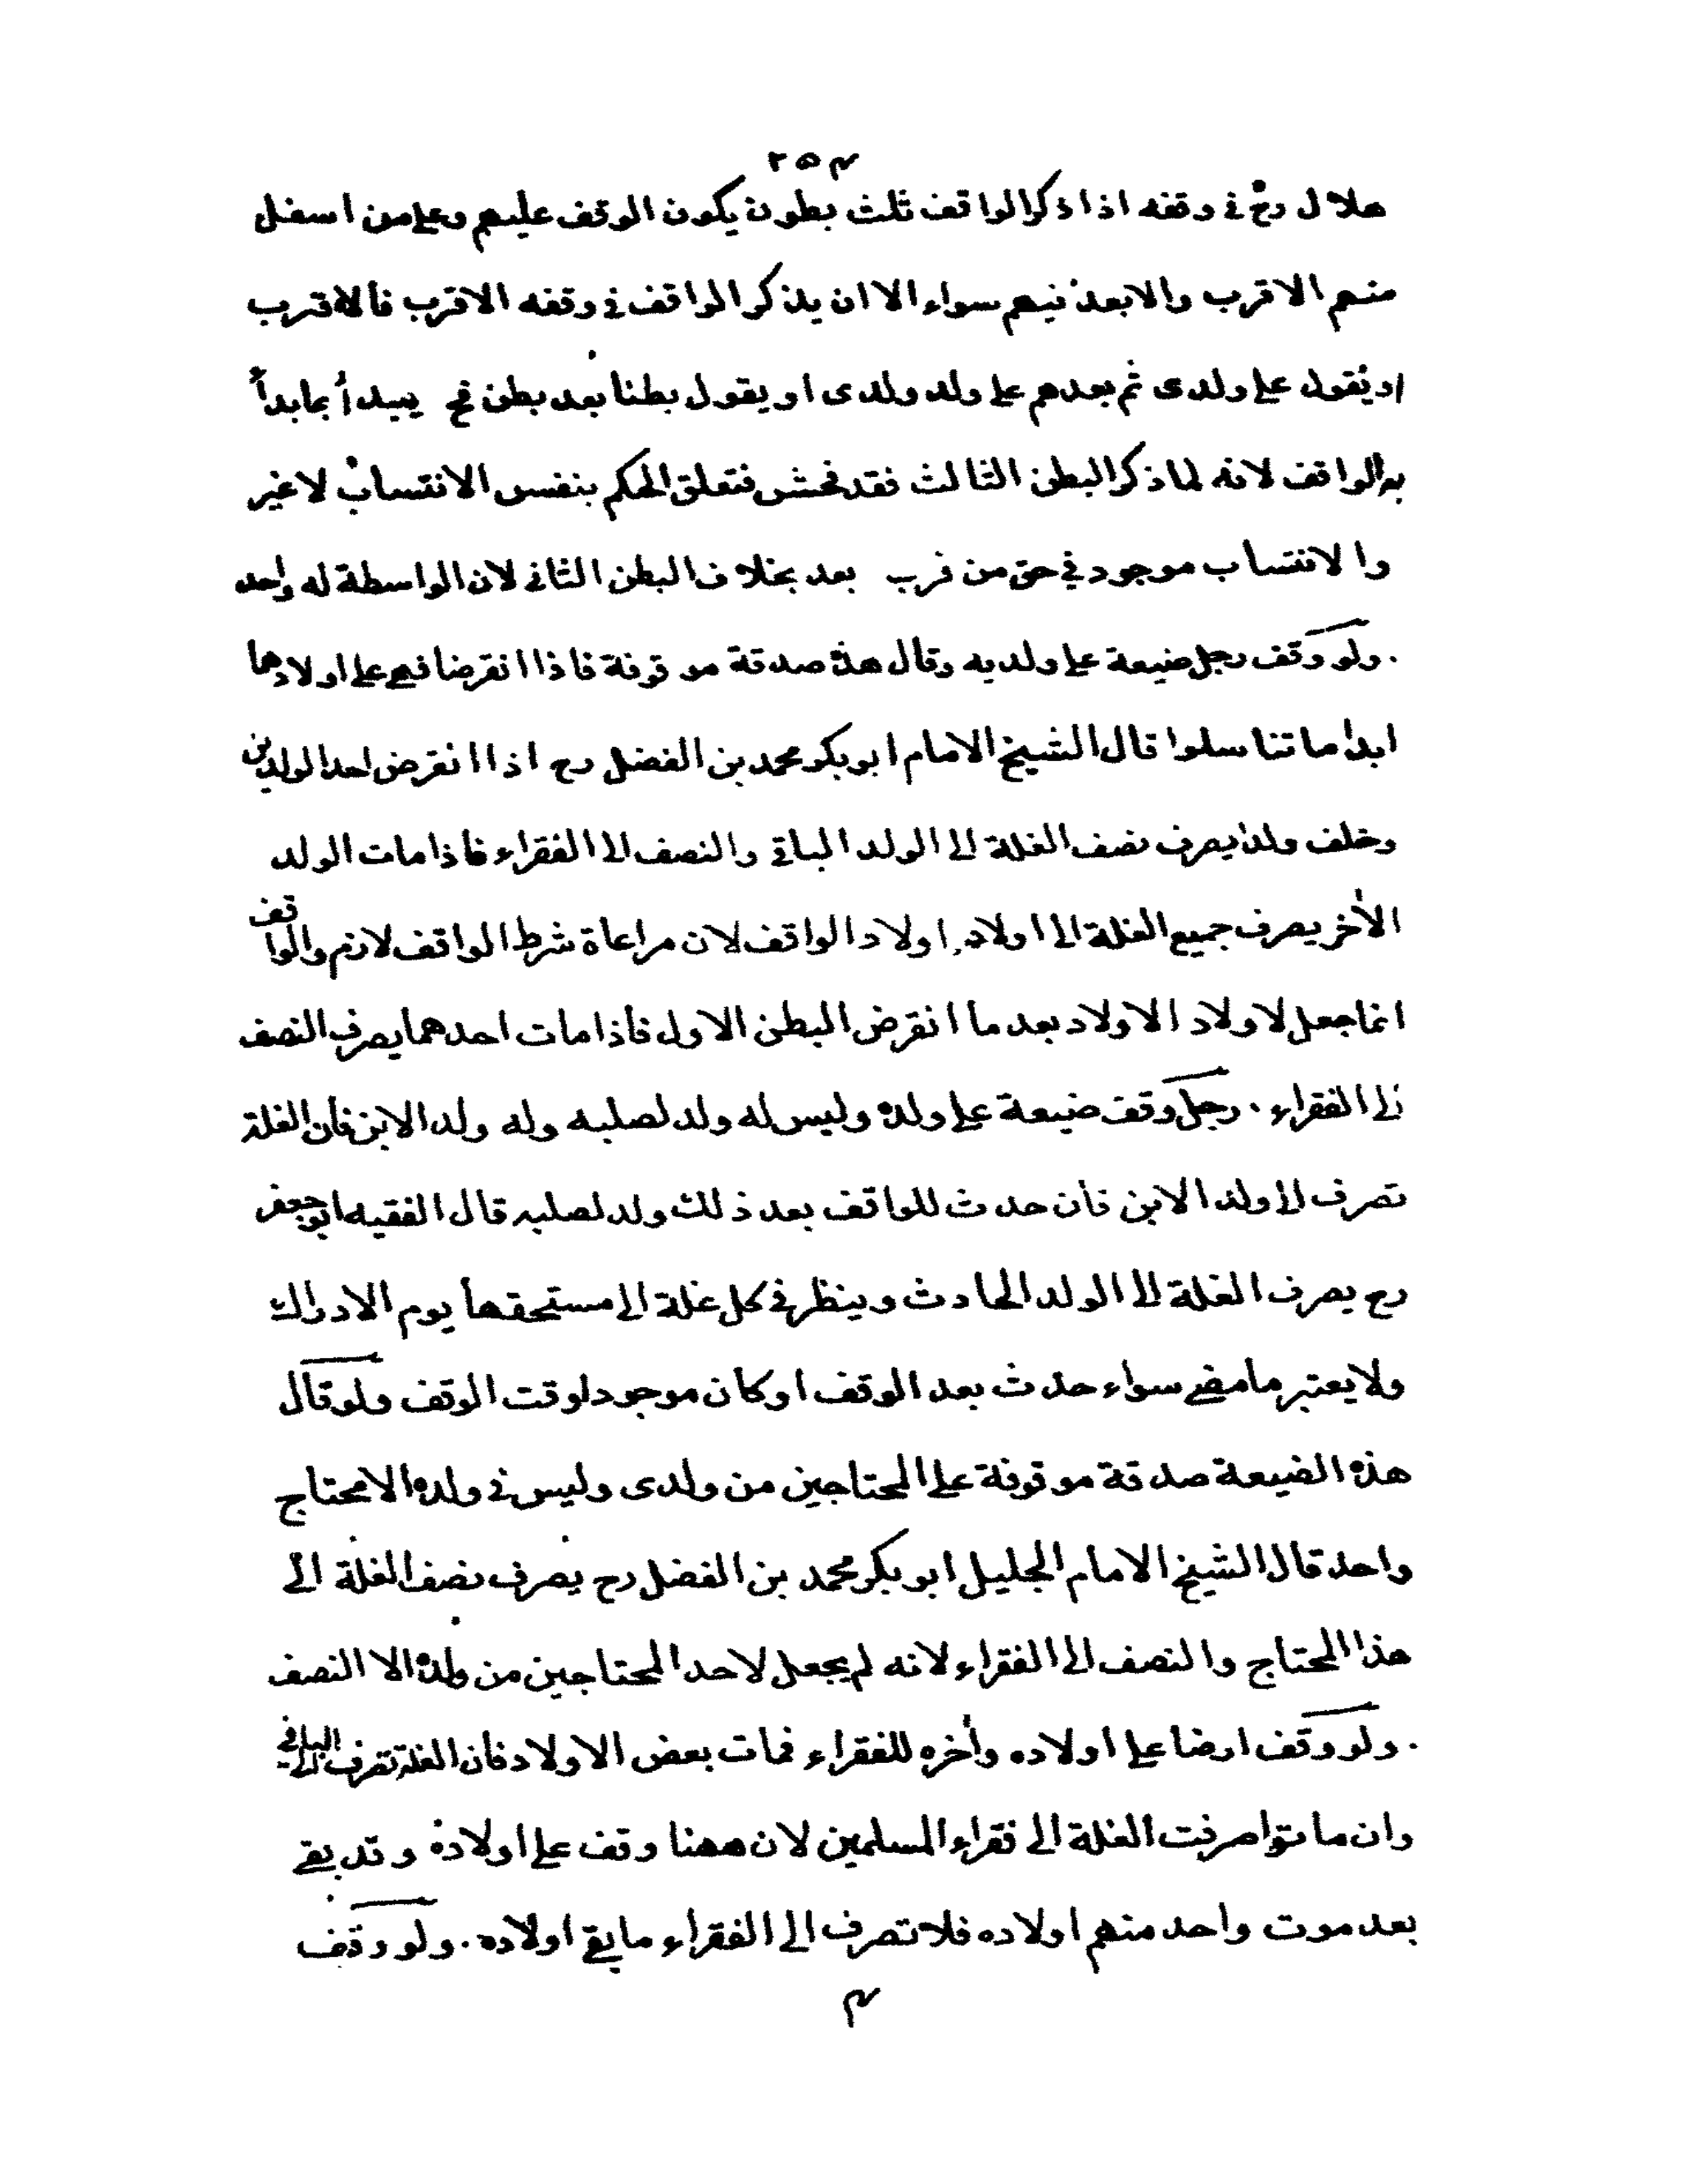 ٢٥٤
هلال رح في وقفه اذا ذكر الواقف ثلث بطون يكون الوقف عليهم وعلى من اسفل
منهم الاقرب والابعد فيهم سواء الا ان يذكر الواقف في وقفه الاقرب فالاقرب
او يقول على ولدى ثم بعدهم على ولد ولدى او يقول بطنا بعد بطن فح يبدأ بما بدأ
به الواقف لانه لما ذكر البطن الثالث فقد فحش فتعلق الحكم بنفس الانتساب لا غير
والانتساب موجود في حق من قرب بعد بخلاف البطن الثانى لان الواسطة له واحد
. ولو وقف رجل ضيعة على ولديه وقال هذه صدقة موقوفة فاذا انقرضا فهى على اولادهما
ابدا ما تناسلوا قال الشيخ الامام ابو بكر محمد بن الفضل رح اذا انقرض احد الولدين
وخلف ولدا يصرف نصف الغلة الى الولد الباقى والنصف الى الفقراء فاذا مات الولد
الأخر يصرف جميع الغلة الى اولاد اولاد الواقف لان مراعاة شرط الواقف لازم والواقف
انما جعل لاولاد الاولاد بعد ما انقرض البطن الاول فاذا مات احدهما يصرف النصف
الى الفقراء . رجل وقف ضيعة على ولده وليس له ولد لصلبه وله ولد الابن فان الغلة
تصرف الى ولد الابن فان حدث للواقف بعد ذلك ولد لصلبه قال الفقيه ابو جعفر
رح يصرف الغلة الى الولد الحادث وينظر في كل غلة الى مستحقها يوم الادراك
ولا يعتبر ما مضى سواء حدث بعد الوقف او كان موجودا وقت الوقف ولو قال
هذه الضيعة صدقة موقوفة على المحتاجين من ولدى وليس في ولده الا محتاج
واحد قال الشيخ الامام الجليل ابو بكر محمد بن الفضل رح يصرف نصف الغلة الى
هذا المحتاج والنصف الى الفقراء لانه لم يجعل لاحد المحتاجين من ولده الا النصف
. ولو وقف ارضا على اولاده وأخره للفقراء فمات بعض الاولاد فان الغلة تصرف الى الباقى
وان ماتوا صرفت الغلة الى فقراء المسلمين لان ههنا وقف على اولاده وقد بقى
بعد موت واحد منهم اولاده فلا تصرف الى الفقراء ما بقى اولاده . ولو وقف
م